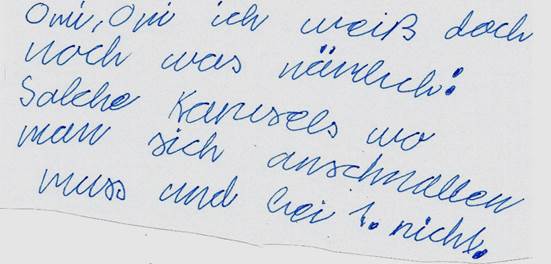 Omi, Omi ich weiß doch
noch was nämlich:
Solche Karusels wo
man sich anschnallen
muss und bei 1. nicht.